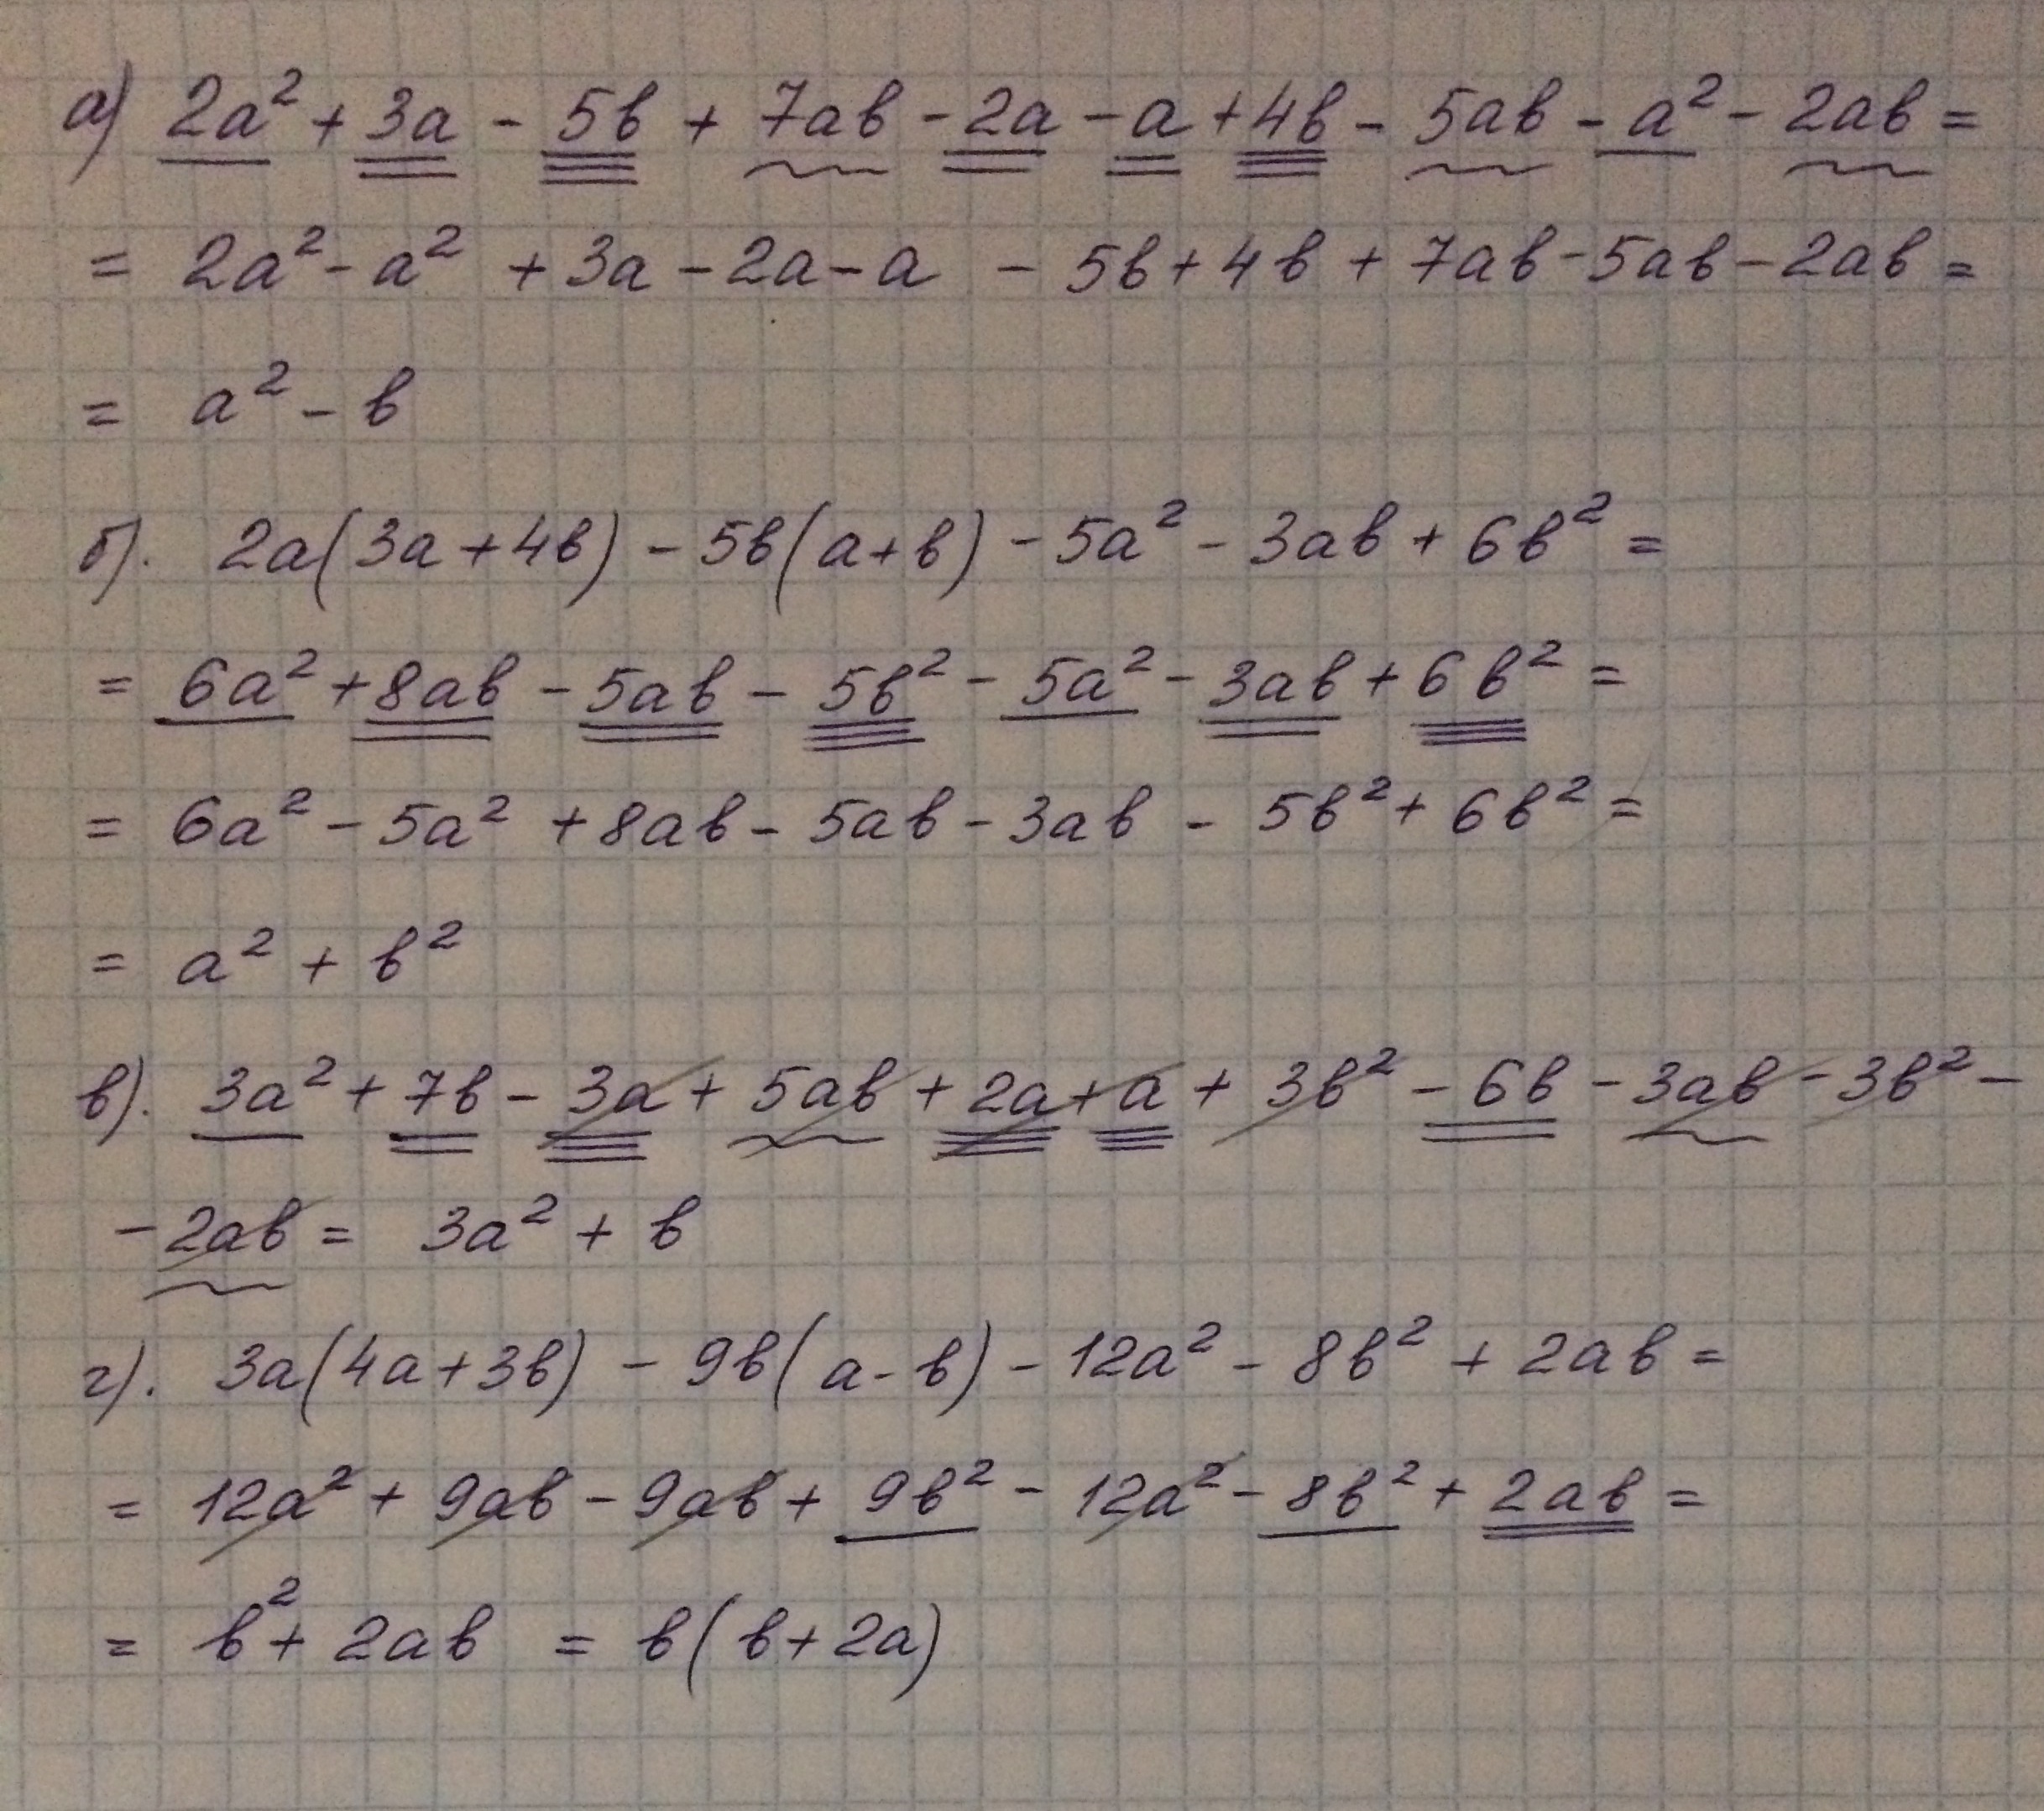 а) 2a² + 3a - 5b + 7ab - 2a - a + 4b - 5ab - a² - 2ab =
= 2a² - a² + 3a - 2a - a - 5b + 4b + 7ab - 5ab - 2ab =
= a² - b
б). 2a(3a + 4b) - 5b(a + b) - 5a² - 3ab + 6b² =
= 6a² + 8ab - 5ab - 5b² - 5a² - 3ab + 6b² =
= 6a² - 5a² + 8ab - 5ab - 3ab - 5b² + 6b² =
= a² + b²
в). 3a² + 7b - 3a + 5ab + 2a + a + 3b² - 6b - 3ab - 3b² -
- 2ab = 3a² + b
г). 3a(4a + 3b) - 9b(a - b) - 12a² - 8b² + 2ab =
= 12a² + 9ab - 9ab + 9b² - 12a² - 8b² + 2ab =
= b² + 2ab = b(b + 2a)